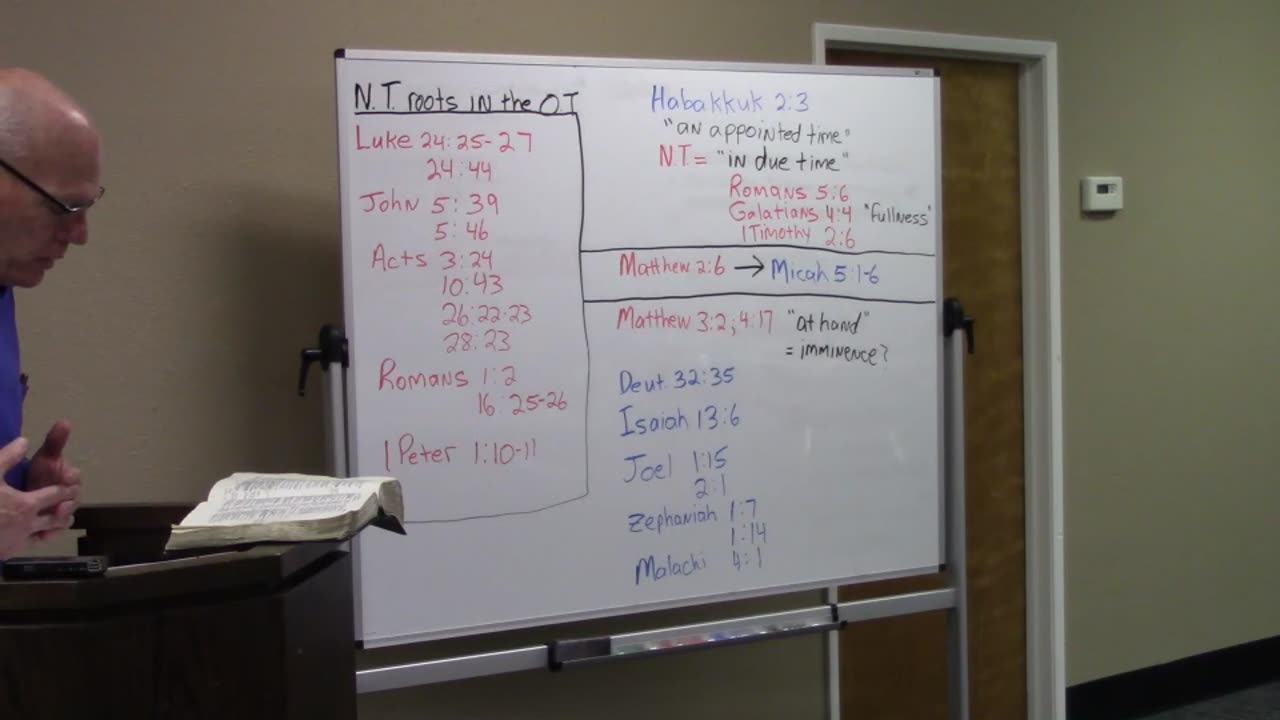 N.T. roots IN the O.T
Luke 24:25-27
24:44
John 5:39
5:46
Acts 3:24
10:43
26:22-23
28:23
Romans 1:2
16:25-26
1 Peter 1:10-11
Habakkuk 2:3
"an appointed time"
N.T. = "in due time"
Romans 5:6
Galatians 4:4 "fullness"
1 Timothy 2:6
Matthew 2:6 → Micah 5:1-6
Matthew 3:2; 4:17 "at hand"
= imminence?
Deut. 32:35
Isaiah 13:6
Joel 1:15
2:1
Zephaniah 1:7
1:14
Malachi 4:1